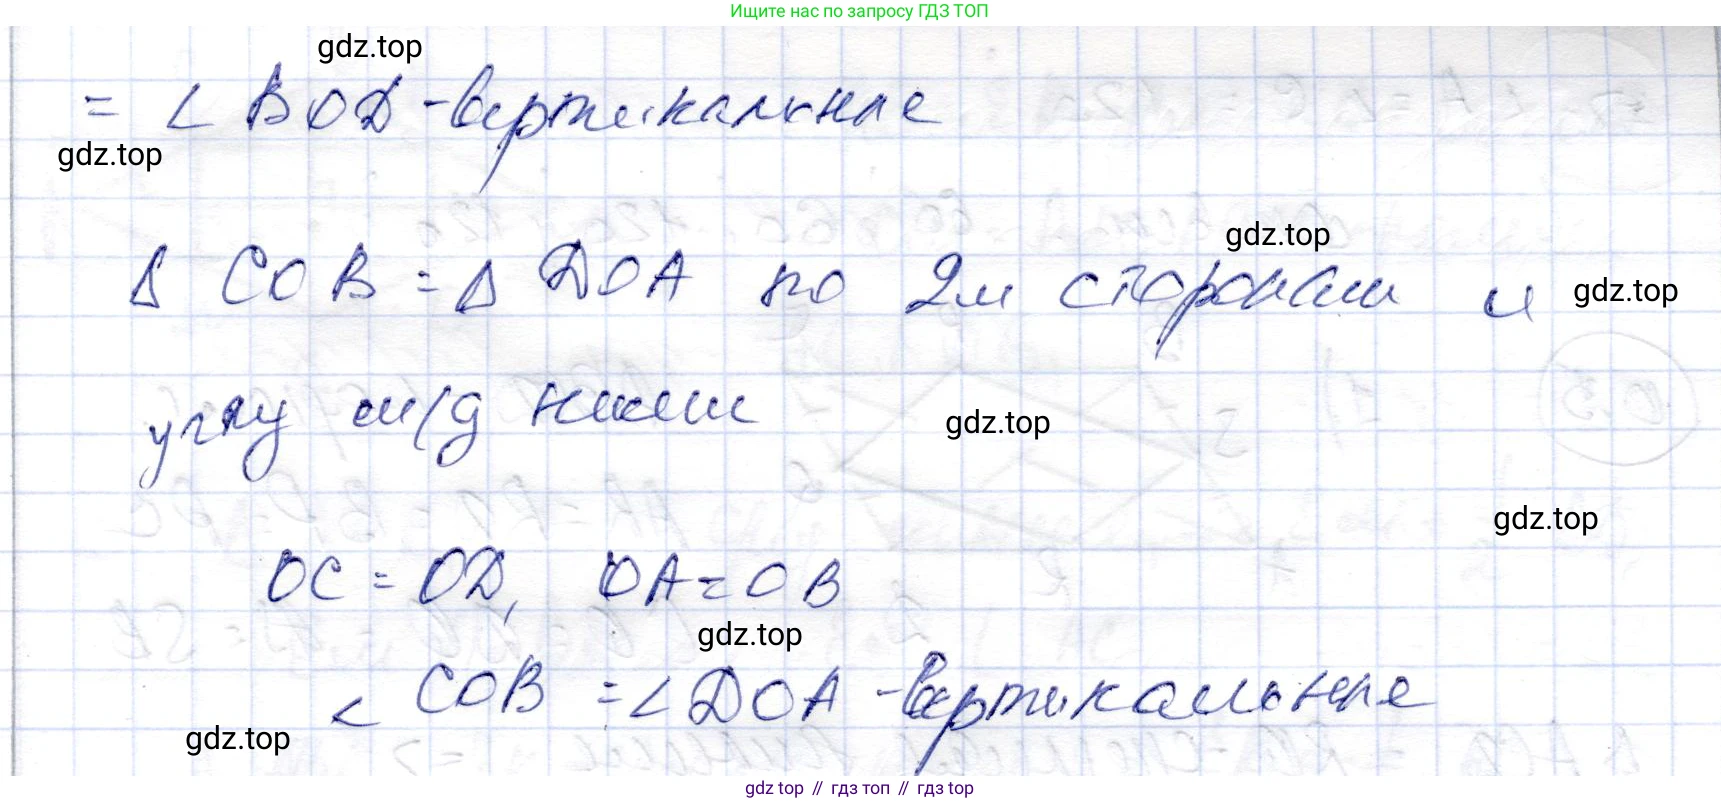 Ищите нас по запросу ГДЗ ТОП
gdz.top
= ∠ BOD - вертикальные
gdz.top
gdz.top
Δ COB = Δ DOA по 2м сторонам и
gdz.top
углу м/д ними
gdz.top
gdz.top
OC = OD, OA = OB
gdz.top
∠ COB = ∠ DOA - вертикальные
gdz.top
gdz top // гдз топ // gdz top